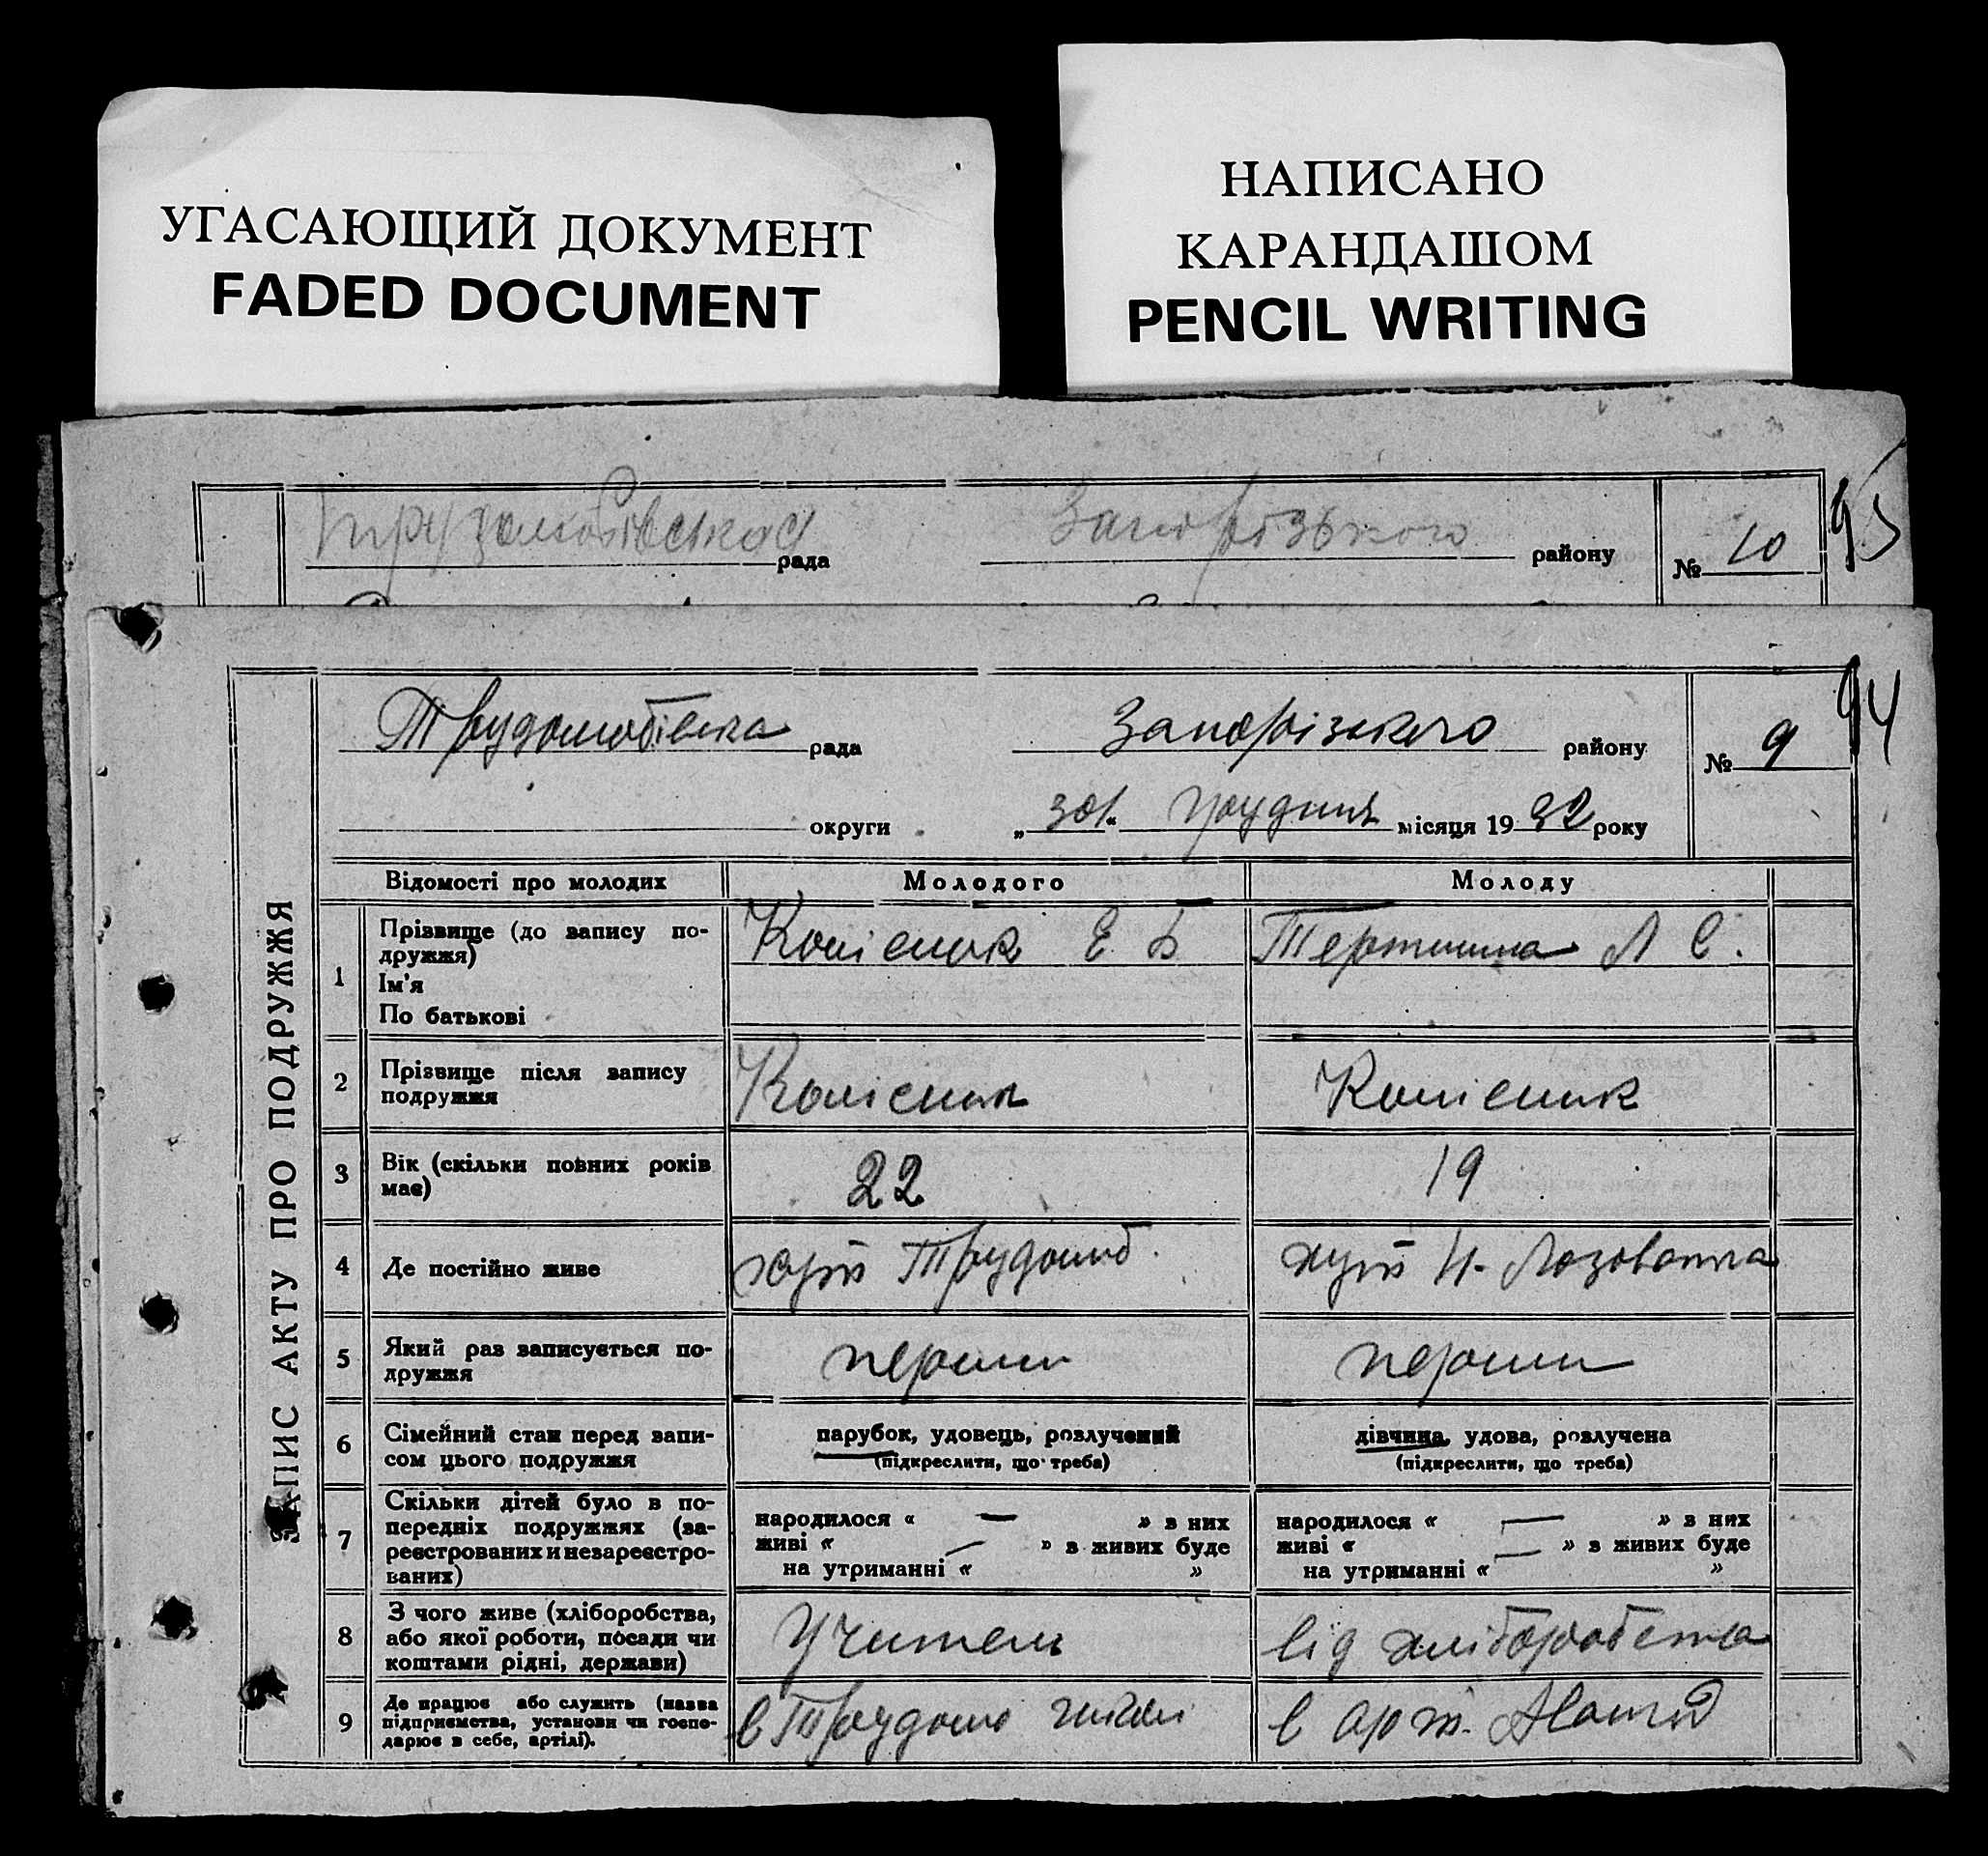 УГАСАЮЩИЙ ДОКУМЕНТ
FADED DOCUMENT
НАПИСАНО
КАРАНДАШОМ
PENCIL WRITING
рада Запорізького району № 10
95
94
Трудолюбівська рада Запорізького району № 9
округи „30“ грудня місяця 1932 року
ЗАПИС АКТУ ПРО ПОДРУЖЖЯ
Відомості про молодих Молодого Молоду
1 Прізвище (до запису по-
дружжя)
Ім'я
По батькові
Колісник Е Б
Л С.
2 Прізвище після запису
подружжя
Колісник
Колісник
3 Вік (скільки повних років
має)
22
19
4 Де постійно живе
Трудолюб.
Н-Лозоватка
5 Який раз записується по-
дружжя
перший
перший
6 Сімейний стан перед запи-
сом цього подружжя
парубок, удовець, розлучений
(підкреслити, що треба)
дівчина, удова, розлучена
(підкреслити, що треба)
7 Скільки дітей було в по-
передніх подружжях (за-
реєстрованих и незареєстро-
ваних)
народилося « — » в них
живі « — » в живих буде
на утриманні « »
народилося « — » в них
живі « — » в живих буде
на утриманні « »
8 З чого живе (хліборобства,
або якої роботи, посади чи
коштами рідні, держави)
Учитель
від хліборобства
9 Де працює або служить (назва
підприємства, установи чи госпо-
дарює в себе, артілі).
в Трудолю школі
в арт.